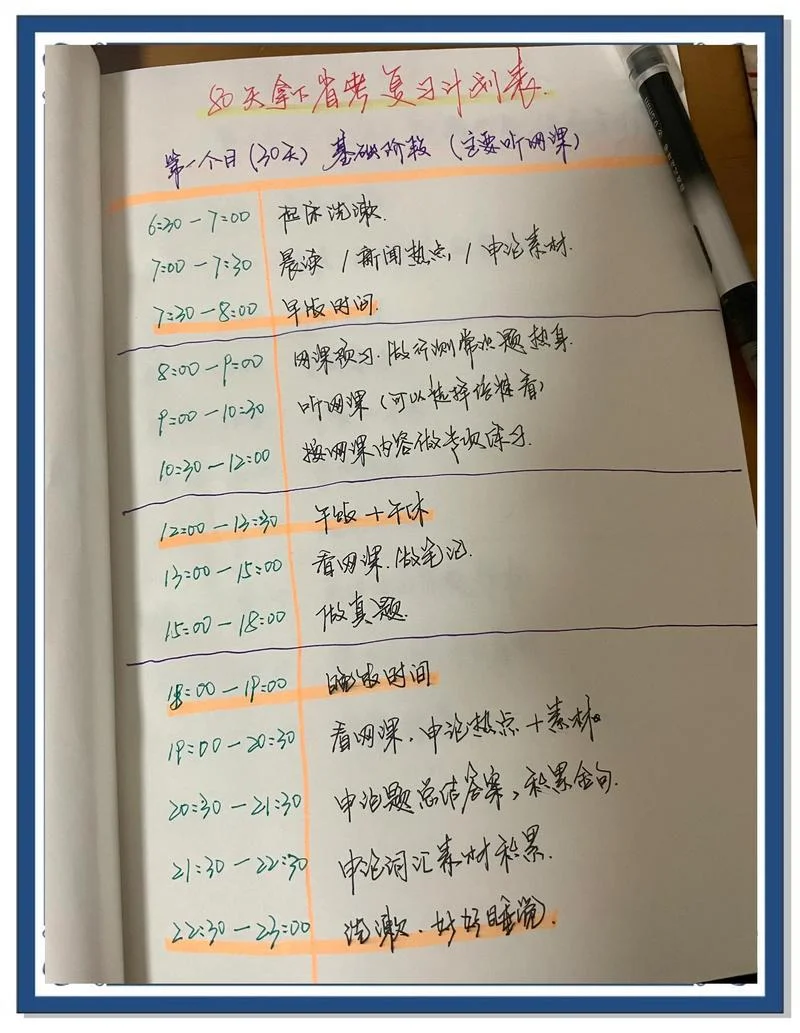 80天拿下省考复习计划表.
第一个月(30天) 基础阶段 (主要听网课)
6:30-7:00 起床洗漱.
7:00-7:30 晨读/新闻热点,/申论素材.
7:30-8:00 早饭时间.
8:00-9:00 网课预习.做行测常识题热身.
9:00-10:30 听网课(可以选择倍速看)
10:30-12:00 按网课内容做专项练习.
12:00-13:30 午饭+午休
13:00-15:00 看网课.做笔记.
15:00-18:00 做真题.
18:00-19:00 晚饭时间
19:00-20:30 看网课.申论热点+素材.
20:30-21:30 申论题总结答案,积累金句.
21:30-22:30 申论词汇素材积累.
22:30-23:00 洗漱.好好睡觉.